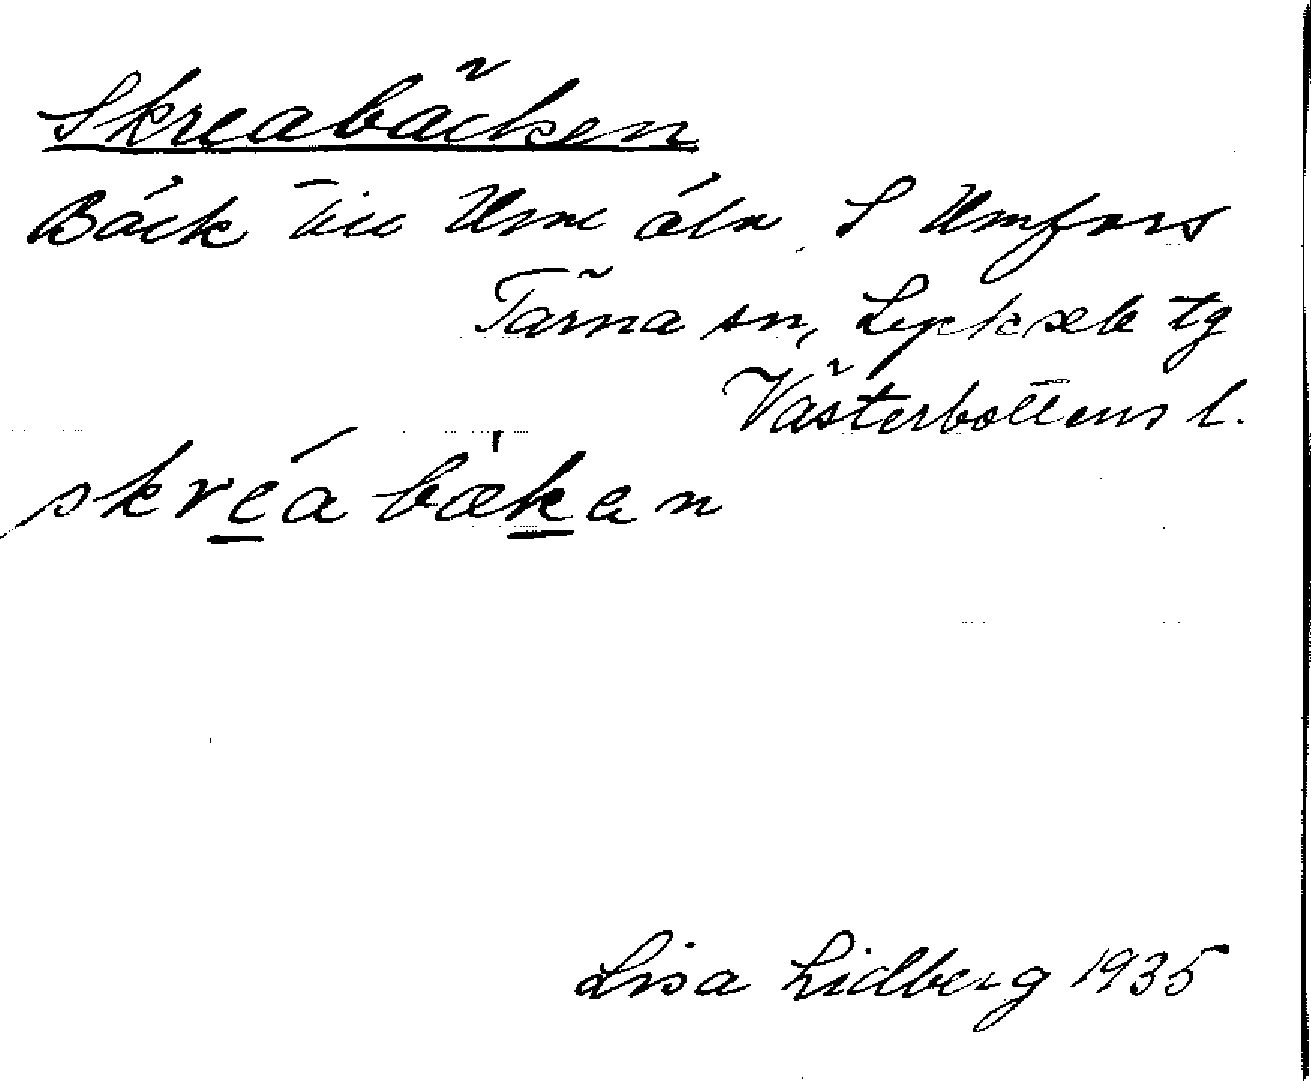 Skreabäcken
Bäck till Ume älv, S Umfors
Tärna sn, Lycksele tg
Västerbottens l.
skréa bækan
Lisa Lidberg 1935